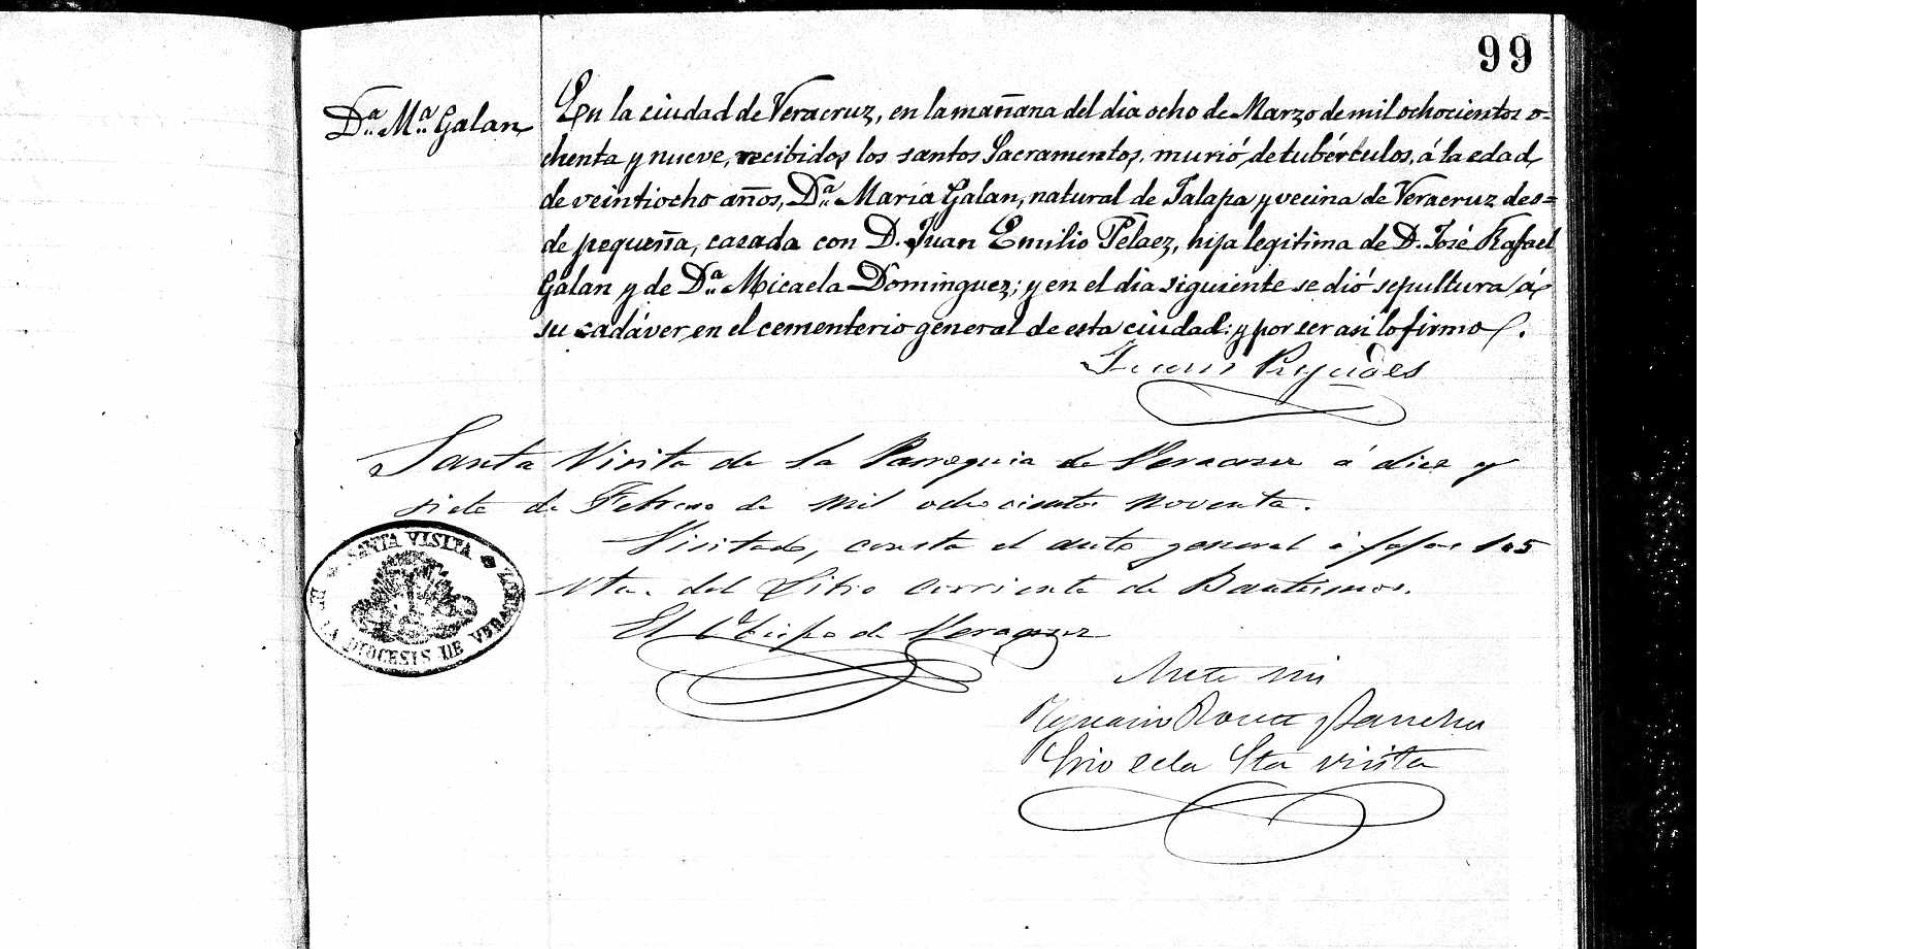 99
D.ª M.ª Galan
En la ciudad de Veracruz, en la mañana del dia ocho de Marzo de mil ochocientos o-
chenta y nueve, recibidos los santos Sacramentos, murió de tubérculos, á la edad
de veintiocho años, D.ª María Galan, natural de Jalapa y vecina de Veracruz des=
de pequeña, casada con D. Juan Emilio Pelaez, hija legitima de D. José Rafael
Galan y de D.ª Micaela Dominguez; y en el dia siguiente se dió sepultura á
su cadáver en el cementerio general de esta ciudad: y por ser asi lo firmo.
Juan
Santa Visita de la Parroquia de Veracruz á diez y
siete de Febrero de mil ochocientos noventa.
Visitado, consta el auto general á fojas 105
vta. del Libro corriente de Bautismos.
El Obispo de Veracruz
SANTA VISITA
DE LA DIOCESIS DE VERACRUZ
Ante mi
Ygnacio
Srio de la Sta visita